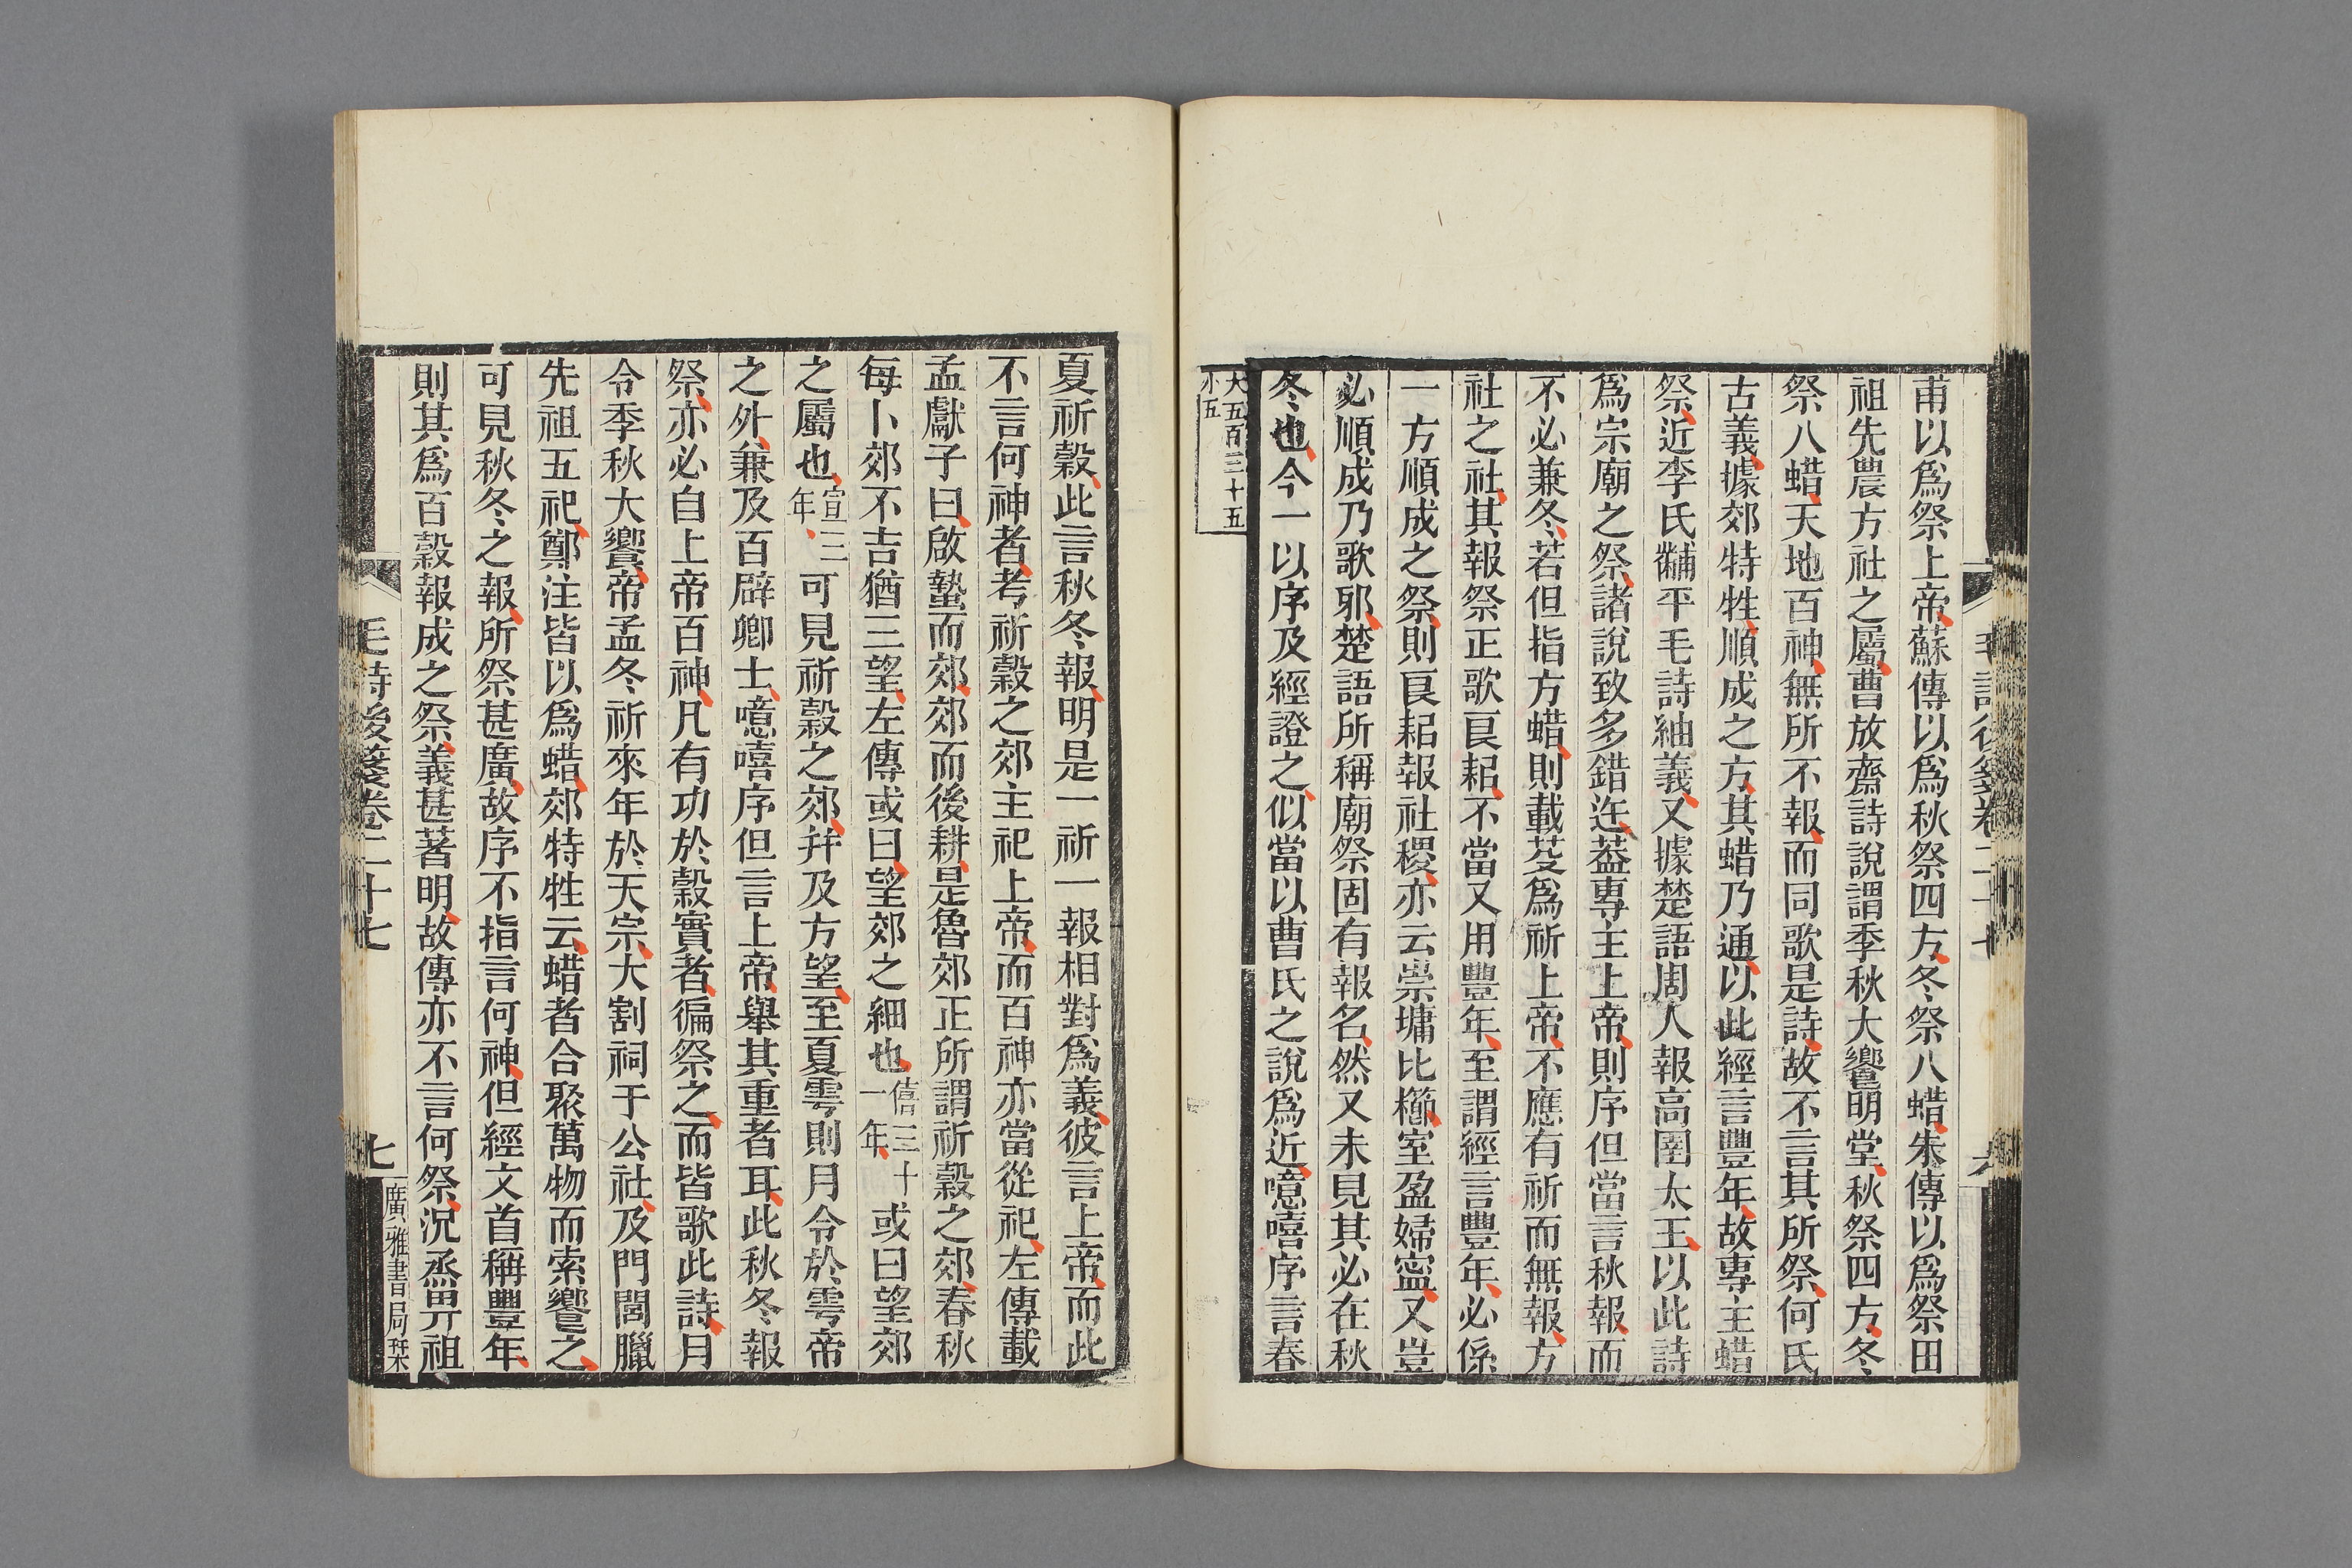 甫以爲祭上帝蘇傳以爲秋祭四方冬祭八蜡朱傳以爲祭田
祖先農方社之屬曹放齋詩說謂季秋大饗明堂秋祭四方冬
祭八蜡天地百神無所不報而同歌是詩故不言其所祭何氏
古義據郊特牲順成之方其蜡乃通以此經言豐年故專主蜡
祭近李氏黼平毛詩紬義又據楚語周人報高圉太王以此詩
爲宗廟之祭諸說致多錯迕葢專主上帝則序但當言秋報而
不必兼冬若但指方蜡則載芟爲祈上帝不應有祈而無報方
社之社其報祭正歌良耜不當又用豐年至謂經言豐年必係
一方順成之祭則良耜報社稷亦云崇墉比櫛室盈婦寍又豈
必順成乃歌邪楚語所稱廟祭固有報名然又未見其必在秋
冬也今一以序及經證之似當以曹氏之說爲近噫嘻序言春
大五百三十五
小五
夏祈穀此言秋冬報明是一祈一報相對爲義彼言上帝而此
不言何神者考祈穀之郊主祀上帝而百神亦當從祀左傳載
孟獻子曰啟蟄而郊郊而後耕是魯郊正所謂祈穀之郊春秋
每卜郊不吉猶三望左傳或曰望郊之細也僖三十一年或曰望郊
之屬也宣三年可見祈穀之郊幷及方望至夏雩則月令於雩帝
之外兼及百辟卿士噫嘻序但言上帝舉其重者耳此秋冬報
祭亦必自上帝百神凡有功於穀實者徧祭之而皆歌此詩月
令季秋大饗帝孟冬祈來年於天宗大割祠于公社及門閭臘
先祖五祀鄭注皆以爲蜡郊特牲云蜡者合聚萬物而索饗之
可見秋冬之報所祭甚廣故序不指言何神但經文首稱豐年
則其爲百穀報成之祭義甚著明故傳亦不言何祭況烝畀祖
毛詩後箋卷二十七
七
廣雅書局栞